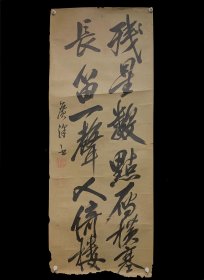 殘星數點雁横塞
長笛一聲人倚樓